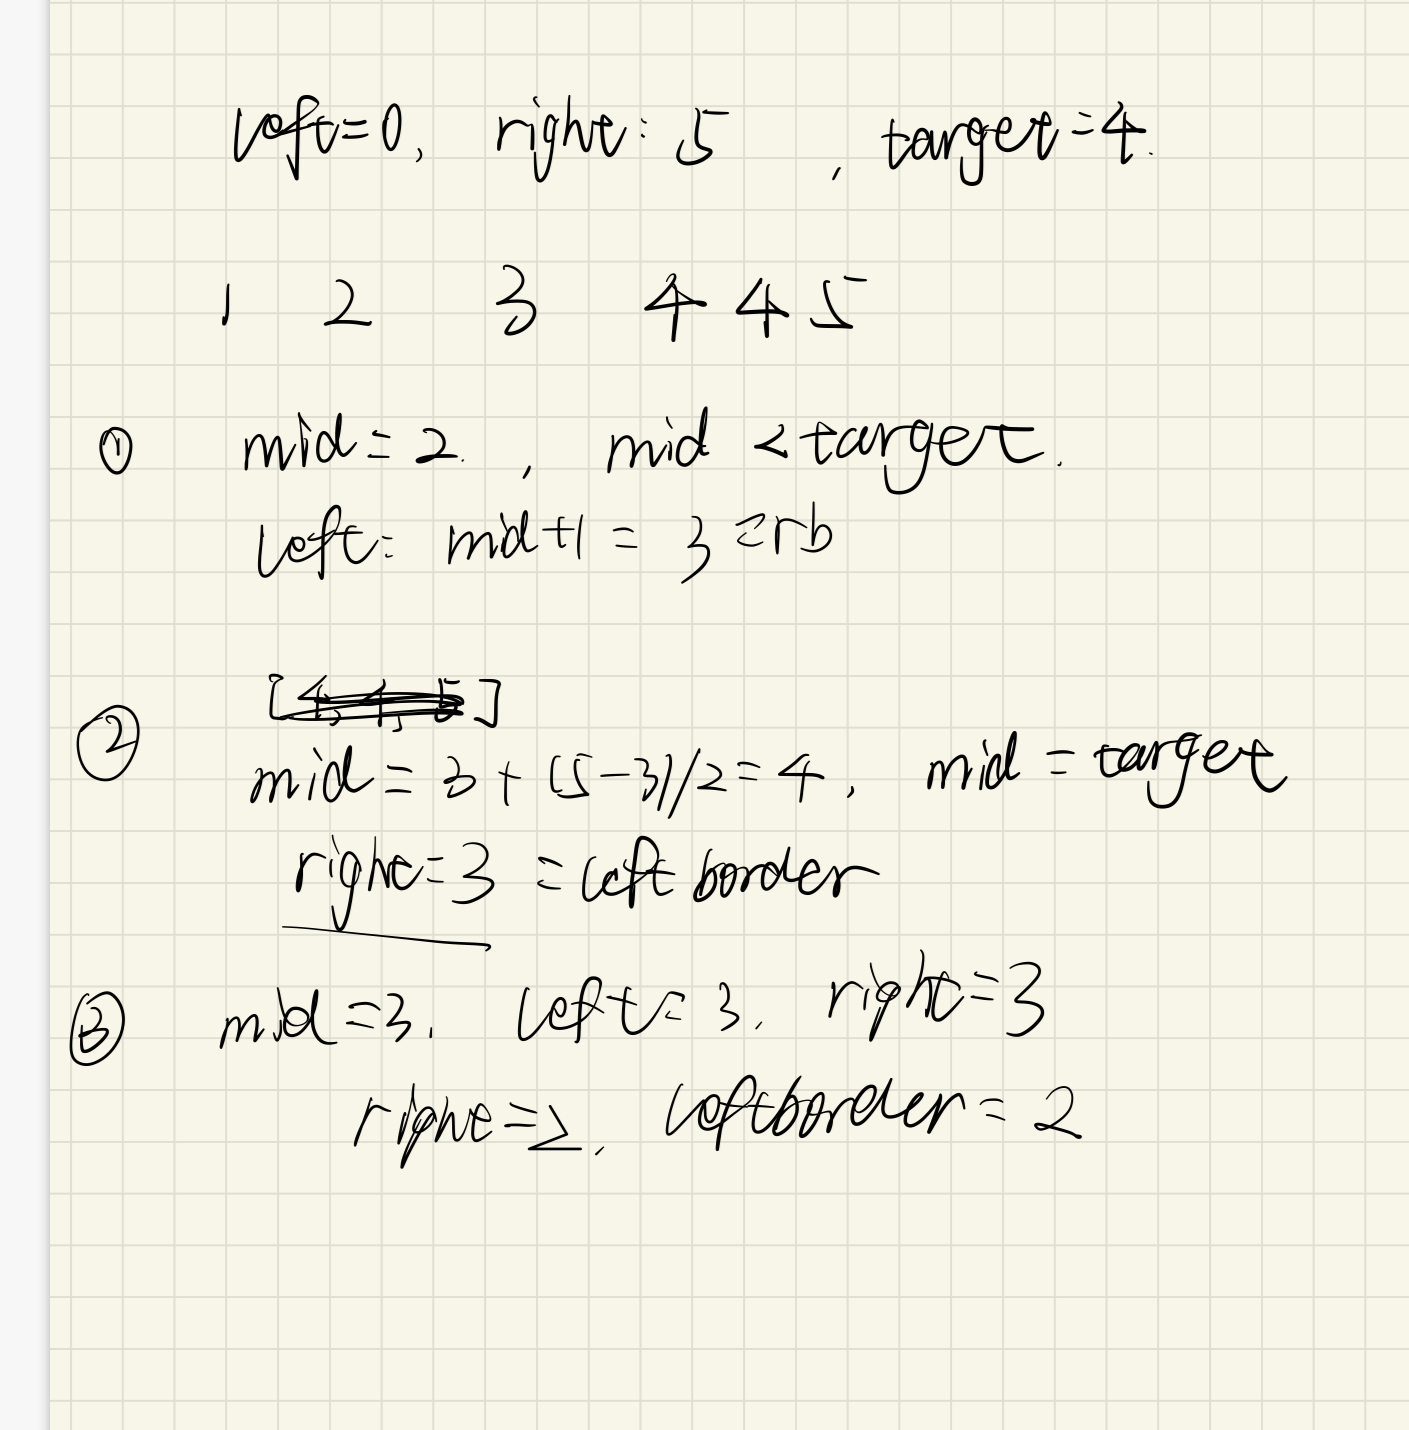 left=0, right: 5 , target=4.
1 2 3 4 4 5
① mid=2. , mid <target.
left= mid+1 = 3 =rb
[4, 4, 5]
② mid = 3 + (5-3)/2=4, mid = target
right=3 = left border
③ mid=3. left=3. right=3
right=2. leftborder=2